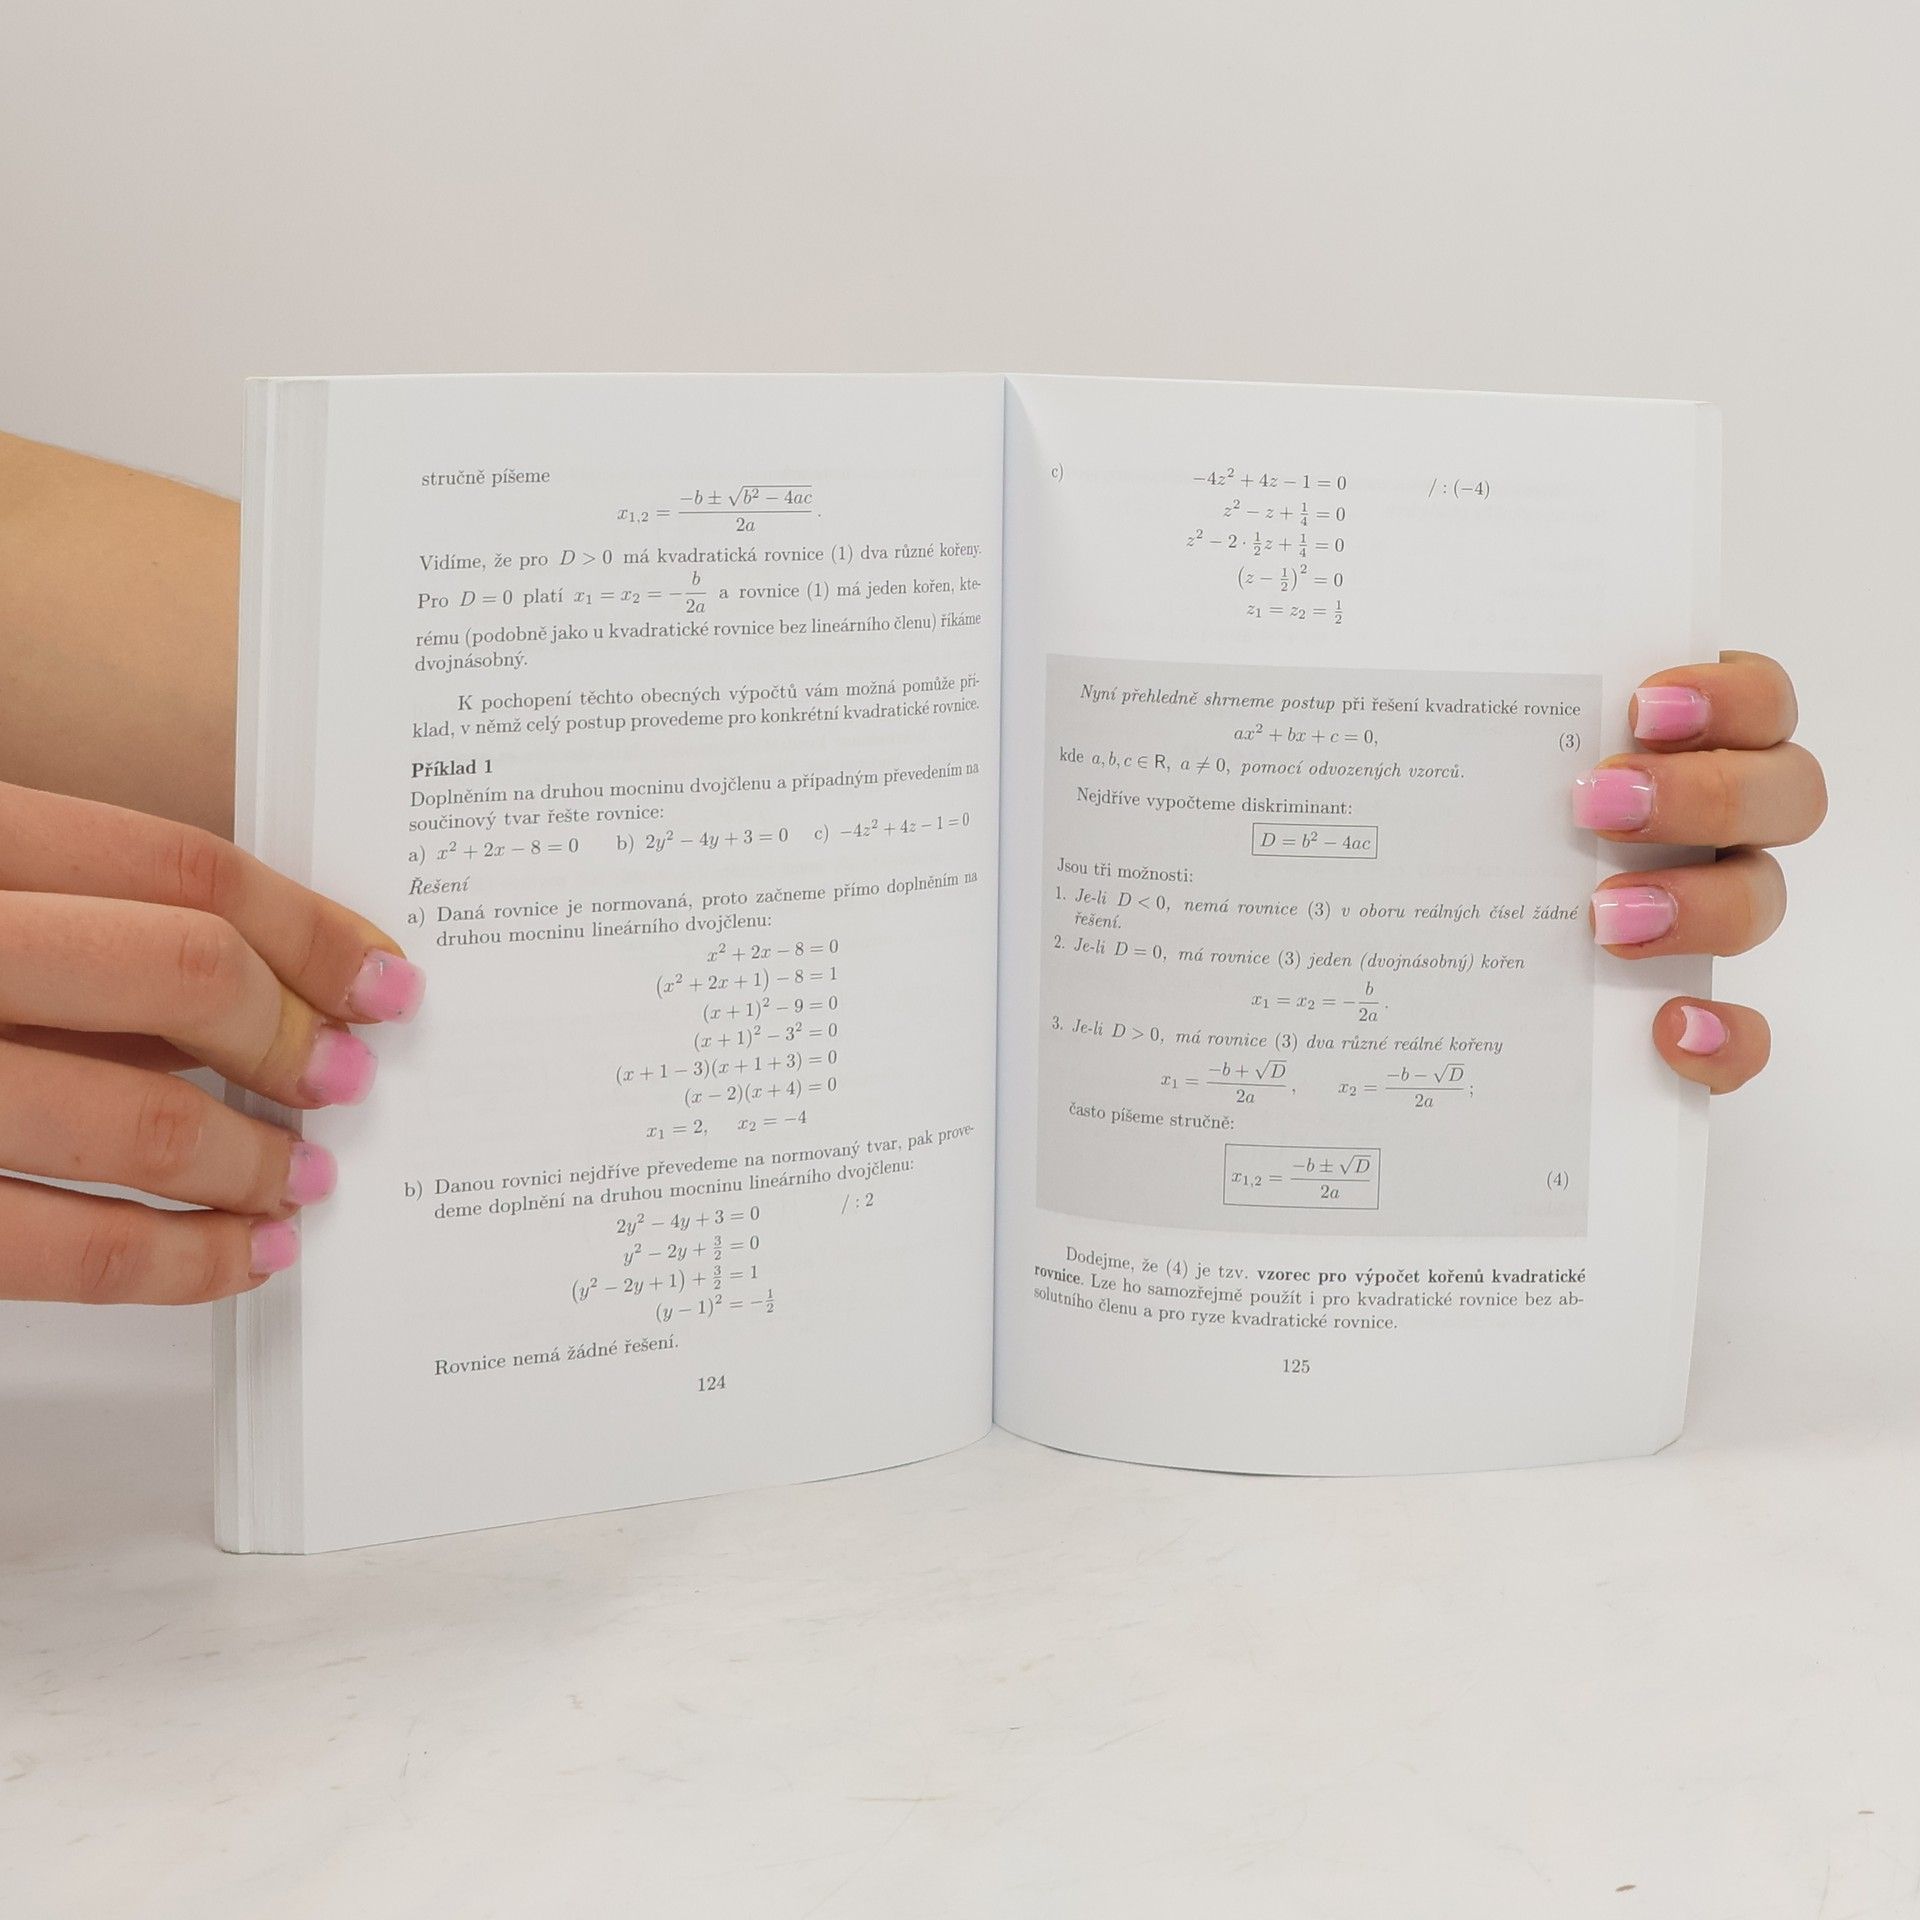 stručně píšeme
x₁,₂ = (−b ± √(b² − 4ac)) / 2a .
Vidíme, že pro D > 0 má kvadratická rovnice (1) dva různé kořeny.
Pro D = 0 platí x₁ = x₂ = −b/2a a rovnice (1) má jeden kořen, kte-
rému (podobně jako u kvadratické rovnice bez lineárního členu) říkáme
dvojnásobný.
K pochopení těchto obecných výpočtů vám možná pomůže pří-
klad, v němž celý postup provedeme pro konkrétní kvadratické rovnice.
Příklad 1
Doplněním na druhou mocninu dvojčlenu a případným převedením na
součinový tvar řešte rovnice:
a) x² + 2x − 8 = 0 b) 2y² − 4y + 3 = 0 c) −4z² + 4z − 1 = 0
Řešení
a) Daná rovnice je normovaná, proto začneme přímo doplněním na
druhou mocninu lineárního dvojčlenu:
x² + 2x − 8 = 0
(x² + 2x + 1) − 8 = 1
(x + 1)² − 9 = 0
(x + 1)² − 3² = 0
(x + 1 − 3)(x + 1 + 3) = 0
(x − 2)(x + 4) = 0
x₁ = 2, x₂ = −4
b) Danou rovnici nejdříve převedeme na normovaný tvar, pak prove-
deme doplnění na druhou mocninu lineárního dvojčlenu:
2y² − 4y + 3 = 0 / : 2
y² − 2y + 3/2 = 0
(y² − 2y + 1) + 3/2 = 1
(y − 1)² = −1/2
Rovnice nemá žádné řešení.
124
c) −4z² + 4z − 1 = 0 / : (−4)
z² − z + 1/4 = 0
z² − 2 · 1/2 z + 1/4 = 0
(z − 1/2)² = 0
z₁ = z₂ = 1/2
Nyní přehledně shrneme postup při řešení kvadratické rovnice
ax² + bx + c = 0, (3)
kde a, b, c ∈ R, a ≠ 0, pomocí odvozených vzorců.
Nejdříve vypočteme diskriminant:
D = b² − 4ac
Jsou tři možnosti:
1. Je-li D < 0, nemá rovnice (3) v oboru reálných čísel žádné
řešení.
2. Je-li D = 0, má rovnice (3) jeden (dvojnásobný) kořen
x₁ = x₂ = −b/2a .
3. Je-li D > 0, má rovnice (3) dva různé reálné kořeny
x₁ = (−b + √D) / 2a , x₂ = (−b − √D) / 2a ;
často píšeme stručně:
x₁,₂ = (−b ± √D) / 2a (4)
Dodejme, že (4) je tzv. vzorec pro výpočet kořenů kvadratické
rovnice. Lze ho samozřejmě použít i pro kvadratické rovnice bez ab-
solutního členu a pro ryze kvadratické rovnice.
125